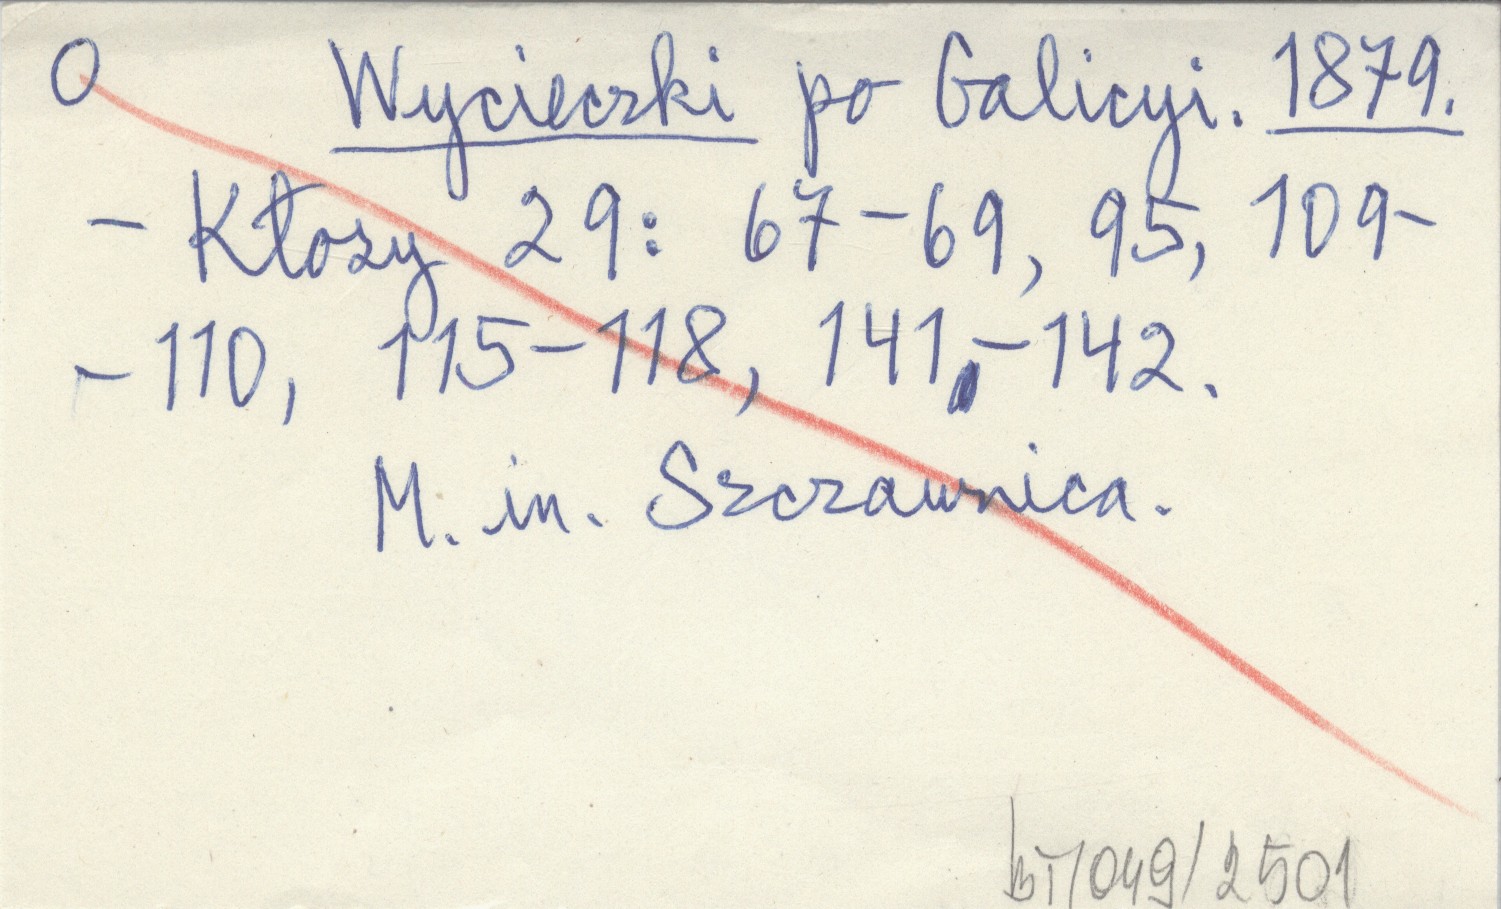 O Wycieczki po Galicyi. 1879.
- Kłosy 29: 67-69, 95, 109-
-110, 115-118, 141,-142.
M. in. Szczawnica.
BT/049/2501